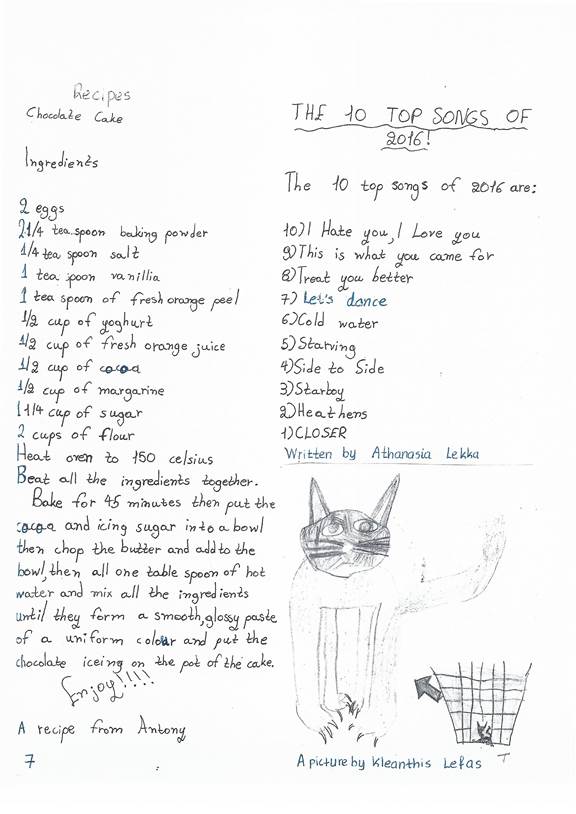 Recipes
Chocolate Cake
Ingredients
2 eggs
2 1/4 tea spoon baking powder
1/4 tea spoon salt
1 tea spoon vanillia
1 tea spoon of fresh orange peel
1/2 cup of yoghurt
1/2 cup of fresh orange juice
1/2 cup of cocoa
1/2 cup of margarine
1 1/4 cup of sugar
2 cups of flour
Heat oven to 150 celsius
Beat all the ingredients together.
Bake for 45 minutes then put the
cocoa and icing sugar into a bowl
then chop the butter and add to the
bowl, then all one table spoon of hot
water and mix all the ingredients
until they form a smooth, glossy paste
of a uniform colour and put the
chocolate iceing on the pot of the cake.
Enjoy!!!!
A recipe from Antony
7
THE 10 TOP SONGS OF
2016!
The 10 top songs of 2016 are:
10) I Hate you, I Love you
9) This is what you came for
8) Treat you better
7) Let's dance
6) Cold water
5) Starving
4) Side to Side
3) Starboy
2) Heathens
1) CLOSER
Written by Athanasia Lekka
A picture by Kleanthis Lefas